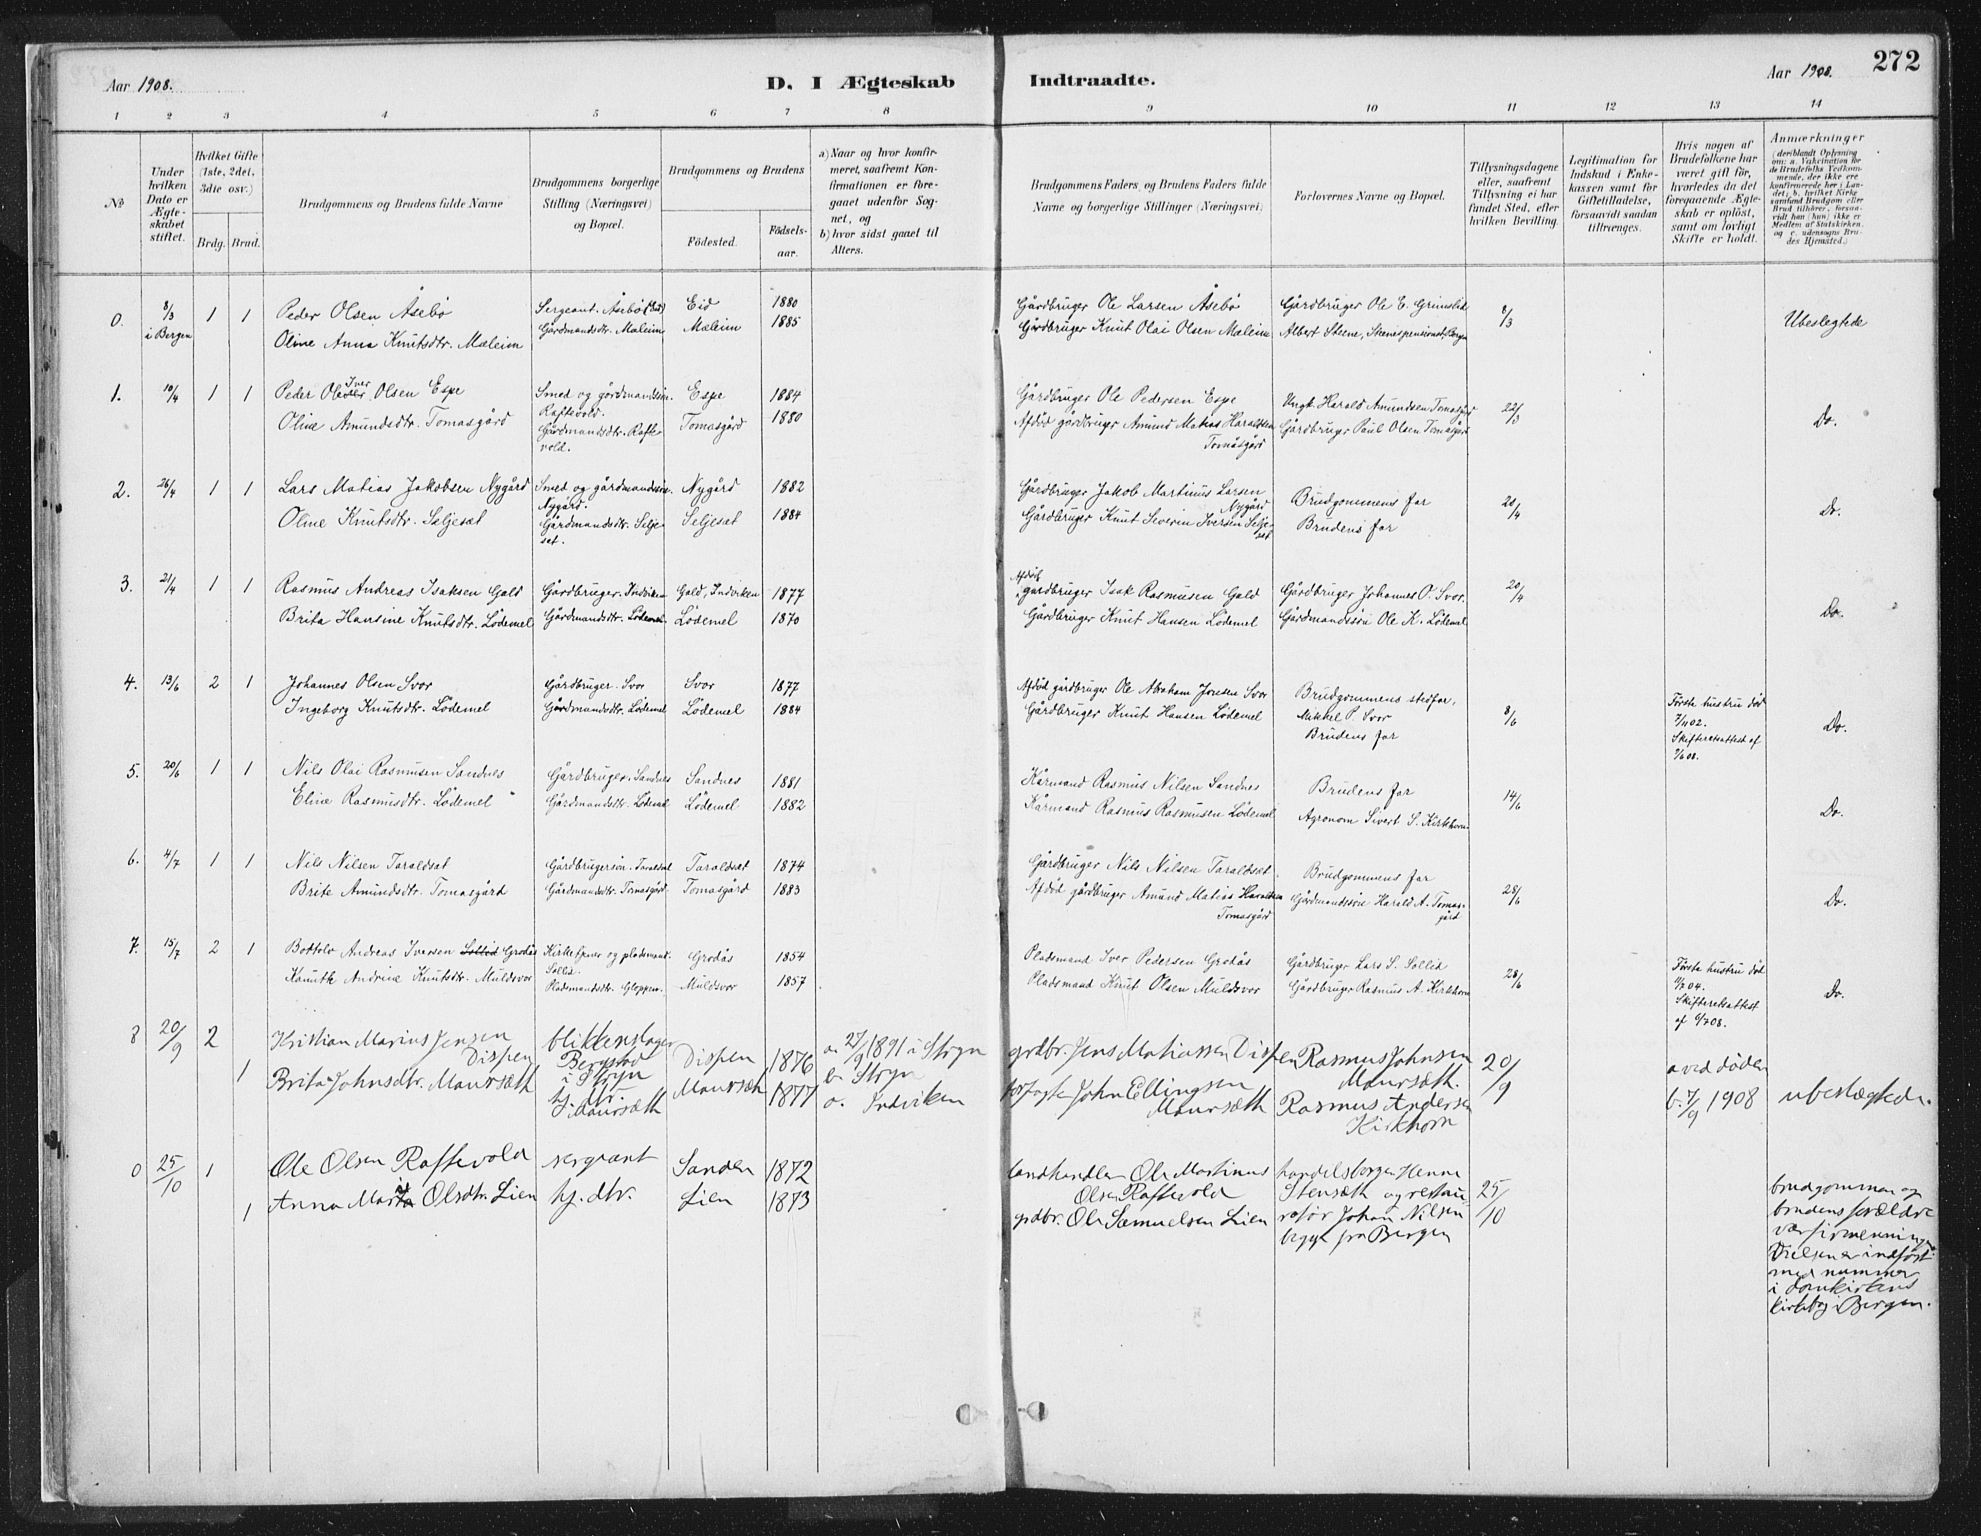 Aar 1908.
D. I Ægteskab
Indtraadte.
Aar 1908.
272
1 2 3 4 5 6 7 8 9 10 11 12 13 14
№
Under hvilken Dato er Ægteskabet stiftet.
Hvilket Gifte (1ste, 2det, 3die osv.)
Brdg. Brud.
Brudgommens og Brudens fulde Navne
Brudgommens borgerlige Stilling (Næringsvei) og Bopæl.
Brudgommens og Brudens
Fødested.
Fødselsaar.
a) Naar og hvor konfirmeret, saafremt Konfirmationen er foregaaet udenfor Sognet, og
b) hvor sidst gaaet til Alters.
Brudgommens Faders og Brudens Faders fulde Navne og borgerlige Stillinger (Næringsvei)
Forlovernes Navne og Bopæl.
Tillysningsdagene eller, saafremt Tillysning ei har fundet Sted, efter hvilken Bevilling.
Legitimation for Indskud i Enkekassen samt for Giftetilladelse, forsaavidt saadan tiltrænges.
Hvis nogen af Brudefolkene har været gift før, hvorledes da det foregaaende Ægteskab er opløst, samt om lovligt Skifte er holdt.
Anmærkninger
(deriblandt Oplysning om: a. Vakcination for de Brudefolks Vedkommende, der ikke ere konfirmerede her i Landet; b. hvilket Kirkesamfund Brudgom eller Brud tilhører, forsaavidt han (hun) ikke er Medlem af Statskirken, og c. udensogns Brudes Hjemsted.)
0. 8/3 i Bergen 1 1 Peder Olsen Åsebø Sergeant. Åsebø (Eid) Eid 1880 Gårdbruger Ole Larsen Åsebø Gårdbruger Ole E. 8/3 Ubeslegtede
Oline Anna Knutsdtr. Mæleim Gårdmandsdtr. Mæleim Mæleim 1885 Gårdbruger Knut Olai Olsen Mæleim Albert Steene, Bergen
1. 10/4 1 1 Peder Iver Olsen Espe Smed og gårdmandssøn. Raftevold. Espe 1884 Gårdbruger Ole Pedersen Espe Ungk. Harald Amundsen Tomasgård 22/3 Do.
Oline Amundsdtr. Tomasgård Gårdmandsdtr. Raftevold. Tomasgård 1880 Afdød gårdbruger Amund Matias Haraldsen Tomasgård Gårdbruger Paul Olsen Tomasgård
2. 26/4 1 1 Lars Matias Jakobsen Nygård Smed og gårdmandssøn. Nygård. Nygård 1882 Gårdbruger Jakob Martinus Larsen Nygård Brudgommens far 20/4 Do.
Oline Knutsdtr. Seljeset Gårdmandsdtr. Seljeset. Seljeset 1884 Gårdbruger Knut Severin Iversen Seljeset Brudens far
3. 21/4 1 1 Rasmus Andreas Isaksen Gald Gårdbruger. Indviken Gald, Indviken 1877 Afdød gårdbruger Isak Rasmusen Gald Gårdbruger Johannes O. Svor. 20/4 Do.
Brita Hansine Knutsdtr. Lødemel Gårdmandsdtr. Lødemel. Lødemel 1870 Gårdbruger Knut Hansen Lødemel Gårdmandssøn Ole K. Lødemel
4. 13/6 2 1 Johannes Olsen Svor Gårdbruger. Svor Svor 1877 Afdød gårdbruger Ole Abraham Jonsen Svor Brudgommens stedfar, Mikkel P. Svor 8/6 Første hustru død 7/11 02. Skifteretsattest af 2/6 08. Do.
Ingeborg Knutsdtr. Lødemel Gårdmandsdtr. Lødemel. Lødemel 1884 Gårdbruger Knut Hansen Lødemel Brudens far
5. 20/6 1 1 Nils Olai Rasmusen Sandnes Gårdbruger. Sandnes Sandnes 1881 Kårmand Rasmus Nilsen Sandnes Brudens far 14/6 Do.
Eline Rasmusdtr. Lødemel Gårdmandsdtr. Lødemel Lødemel 1882 Kårmand Rasmus Rasmusen Lødemel Agronom Sivert S. Kirkhorn
6. 4/7 1 1 Nils Nilsen Taraldset Gårdbrugersøn. Taraldset Taraldset 1874 Gårdbruger Nils Nilsen Taraldset Brudgommens far 28/6 Do.
Brite Amundsdtr. Tomasgård Gårdmandsdtr. Tomasgård. Tomasgård 1883 Afdød gårdbruger Amund Matias Haraldsen Tomasgård Gårdmandssøn Harald A. Tomasgård
7. 15/7 2 1 Bottolv Andreas Iversen Sollid Grodås Kirketjener og pladsmand. Sollid. Grodås 1854 Pladsmand Iver Pedersen Grodås Gårdbruger Lars S. Sollid 28/6 Første hustru død 04. Skifteretsattest af 6/7 08. Do.
Andrine Knutsdtr. Muldsvor Pladsmandsdtr. Gloppen. Muldsvor 1857 Pladsmand Knut Olsen Muldsvor Gårdbruger Rasmus A. Kirkhorn
8 20/9 2 Kristian Marius Jensen Dispen blikkenslager Bergstad i Stryn Dispen 1876 a. 27/9 1891 i Stryn b. Stryn grdbr. Jens Matiassen Dispen Rasmus Johnsen Maursæth. 20/9 a ved døden b. 7/9 1908 ubeslægtede.
1 Brita Johnsdtr. Maursæth hj. dtr. Maursæth Maursæth 1877 a. Indviken John Ellingsen Maursæth Rasmus Andersen Kirkhorn
0 25/10 1 Ole Olsen Raftevold sergeant Sanden 1872 landhandler Ole Martinus Olsen Raftevold handelsborger Henne Stensæth og restauratør Johan Nilsen begge fra Bergen 25/10
1 Anna Marta Olsdtr. Lien hj. dtr. Lien 1873 grdbr. Ole Samuelsen Lien
brudgommen og
brudens forældre
var firmenninger
Vielsen er indført
med nummer
i domkirkens
kirkebog i Bergen.